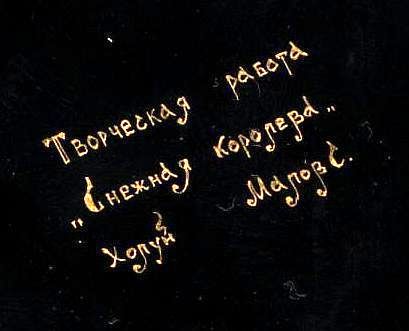 Творческая работа
"Снежная королева"
Холуй Малов С.